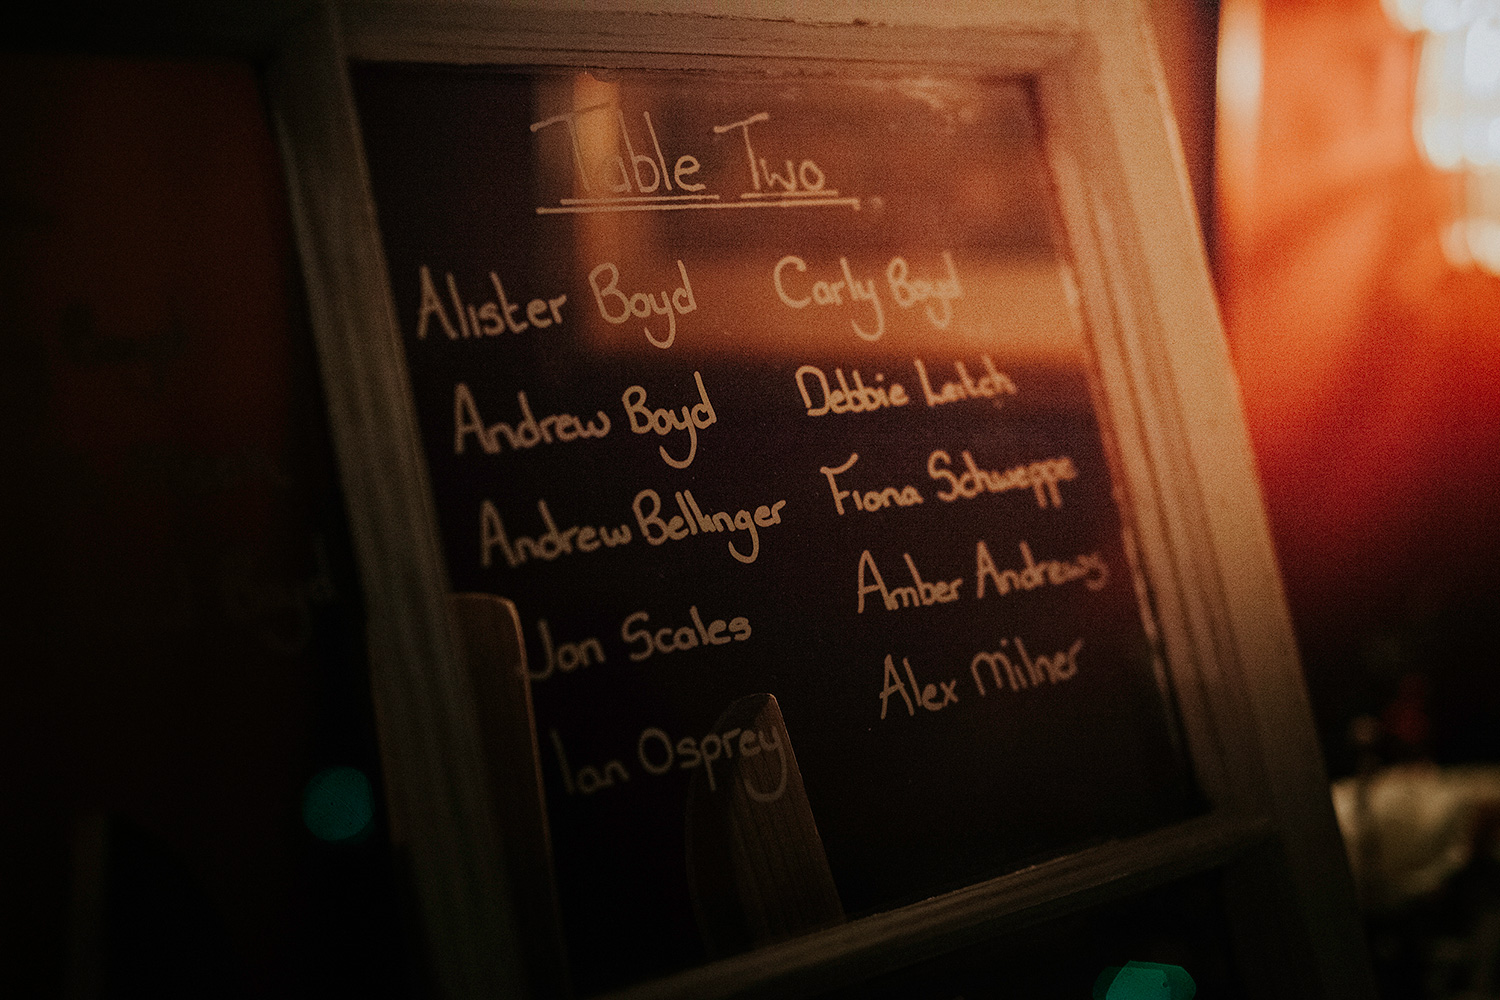 Table Two
Alister Boyd
Andrew Boyd
Andrew Bellinger
Jon Scales
Ian Osprey
Carly Boyd
Debbie Leitch
Fiona Schweppe
Amber Andrews
Alex Milner